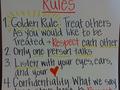 Rules
1. Golden Rule: Treat others
As you would like to be
treated → Respect each other
2. Only one person talks
3. Listen with your eyes, ears,
and your ♥
4. Confidentiality What we say